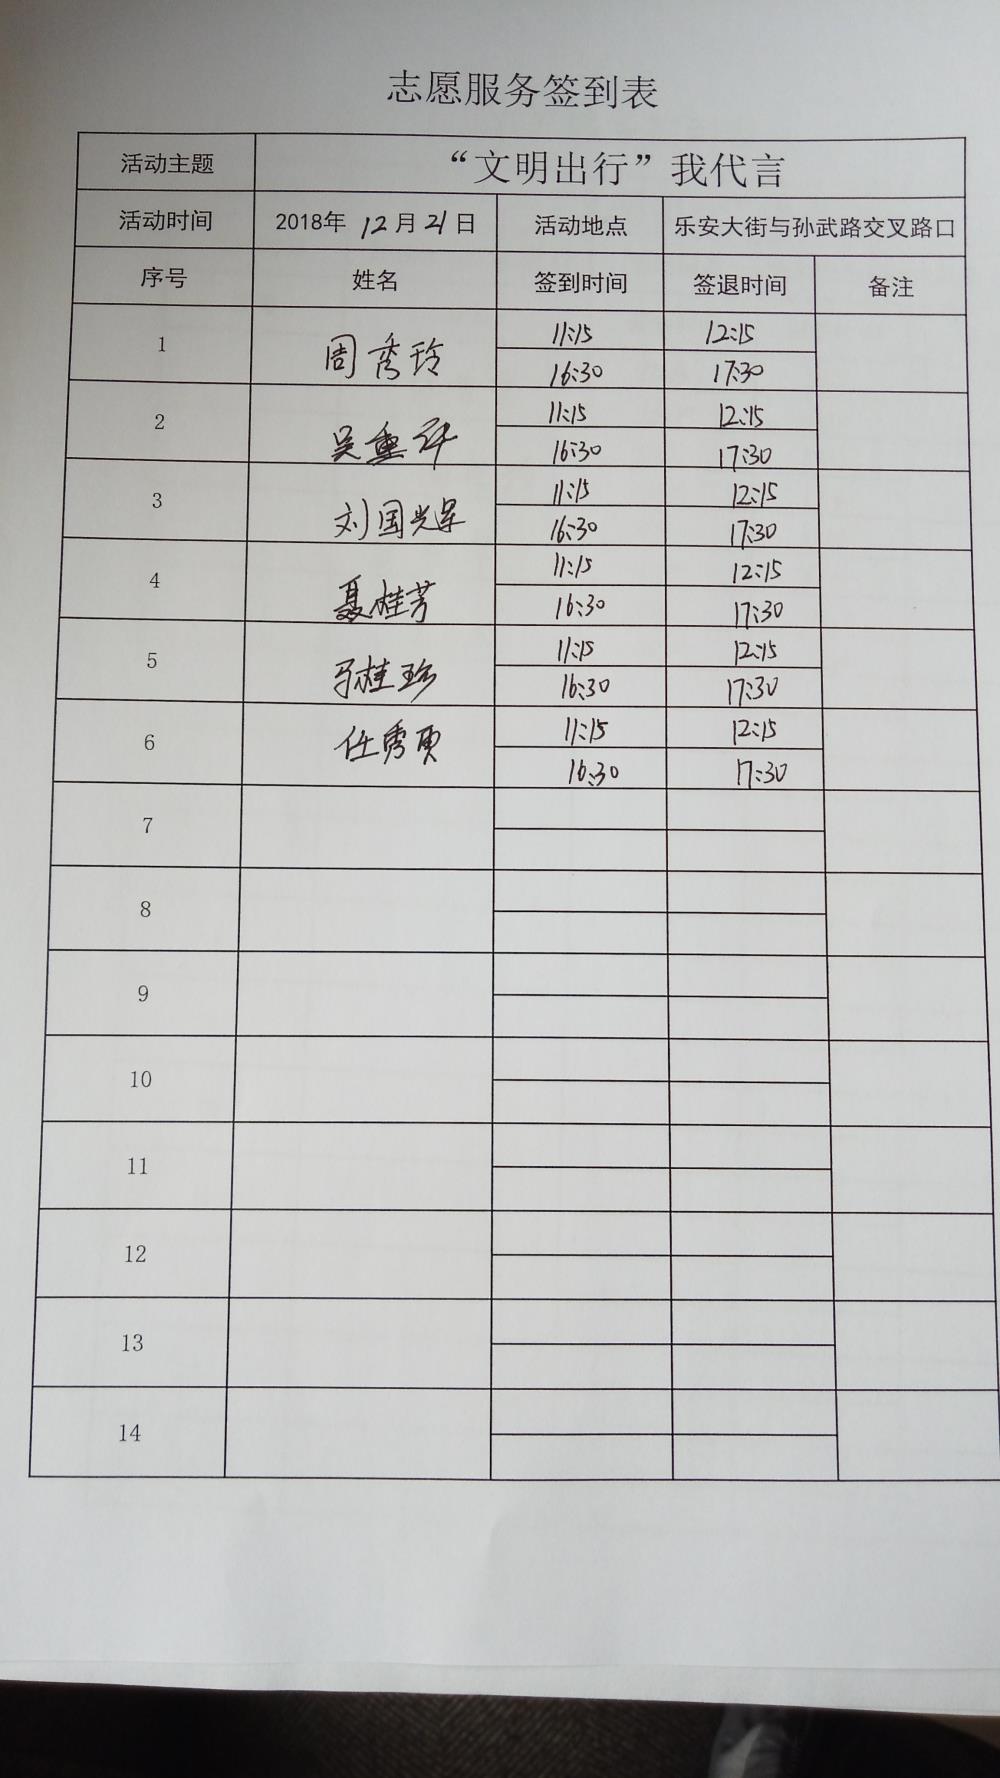 志愿服务签到表
活动主题 “文明出行”我代言
活动时间 2018年 12月 21日 活动地点 乐安大街与孙武路交叉路口
序号 姓名 签到时间 签退时间 备注
1 周秀玲 11:15 12:15
16:30 17:30
2 吴重 11:15 12:15
16:30 17:30
3 刘国光 11:15 12:15
16:30 17:30
4 聂桂芳 11:15 12:15
16:30 17:30
5 桂珍 11:15 12:15
16:30 17:30
6 任秀 11:15 12:15
16:30 17:30
7
8
9
10
11
12
13
14